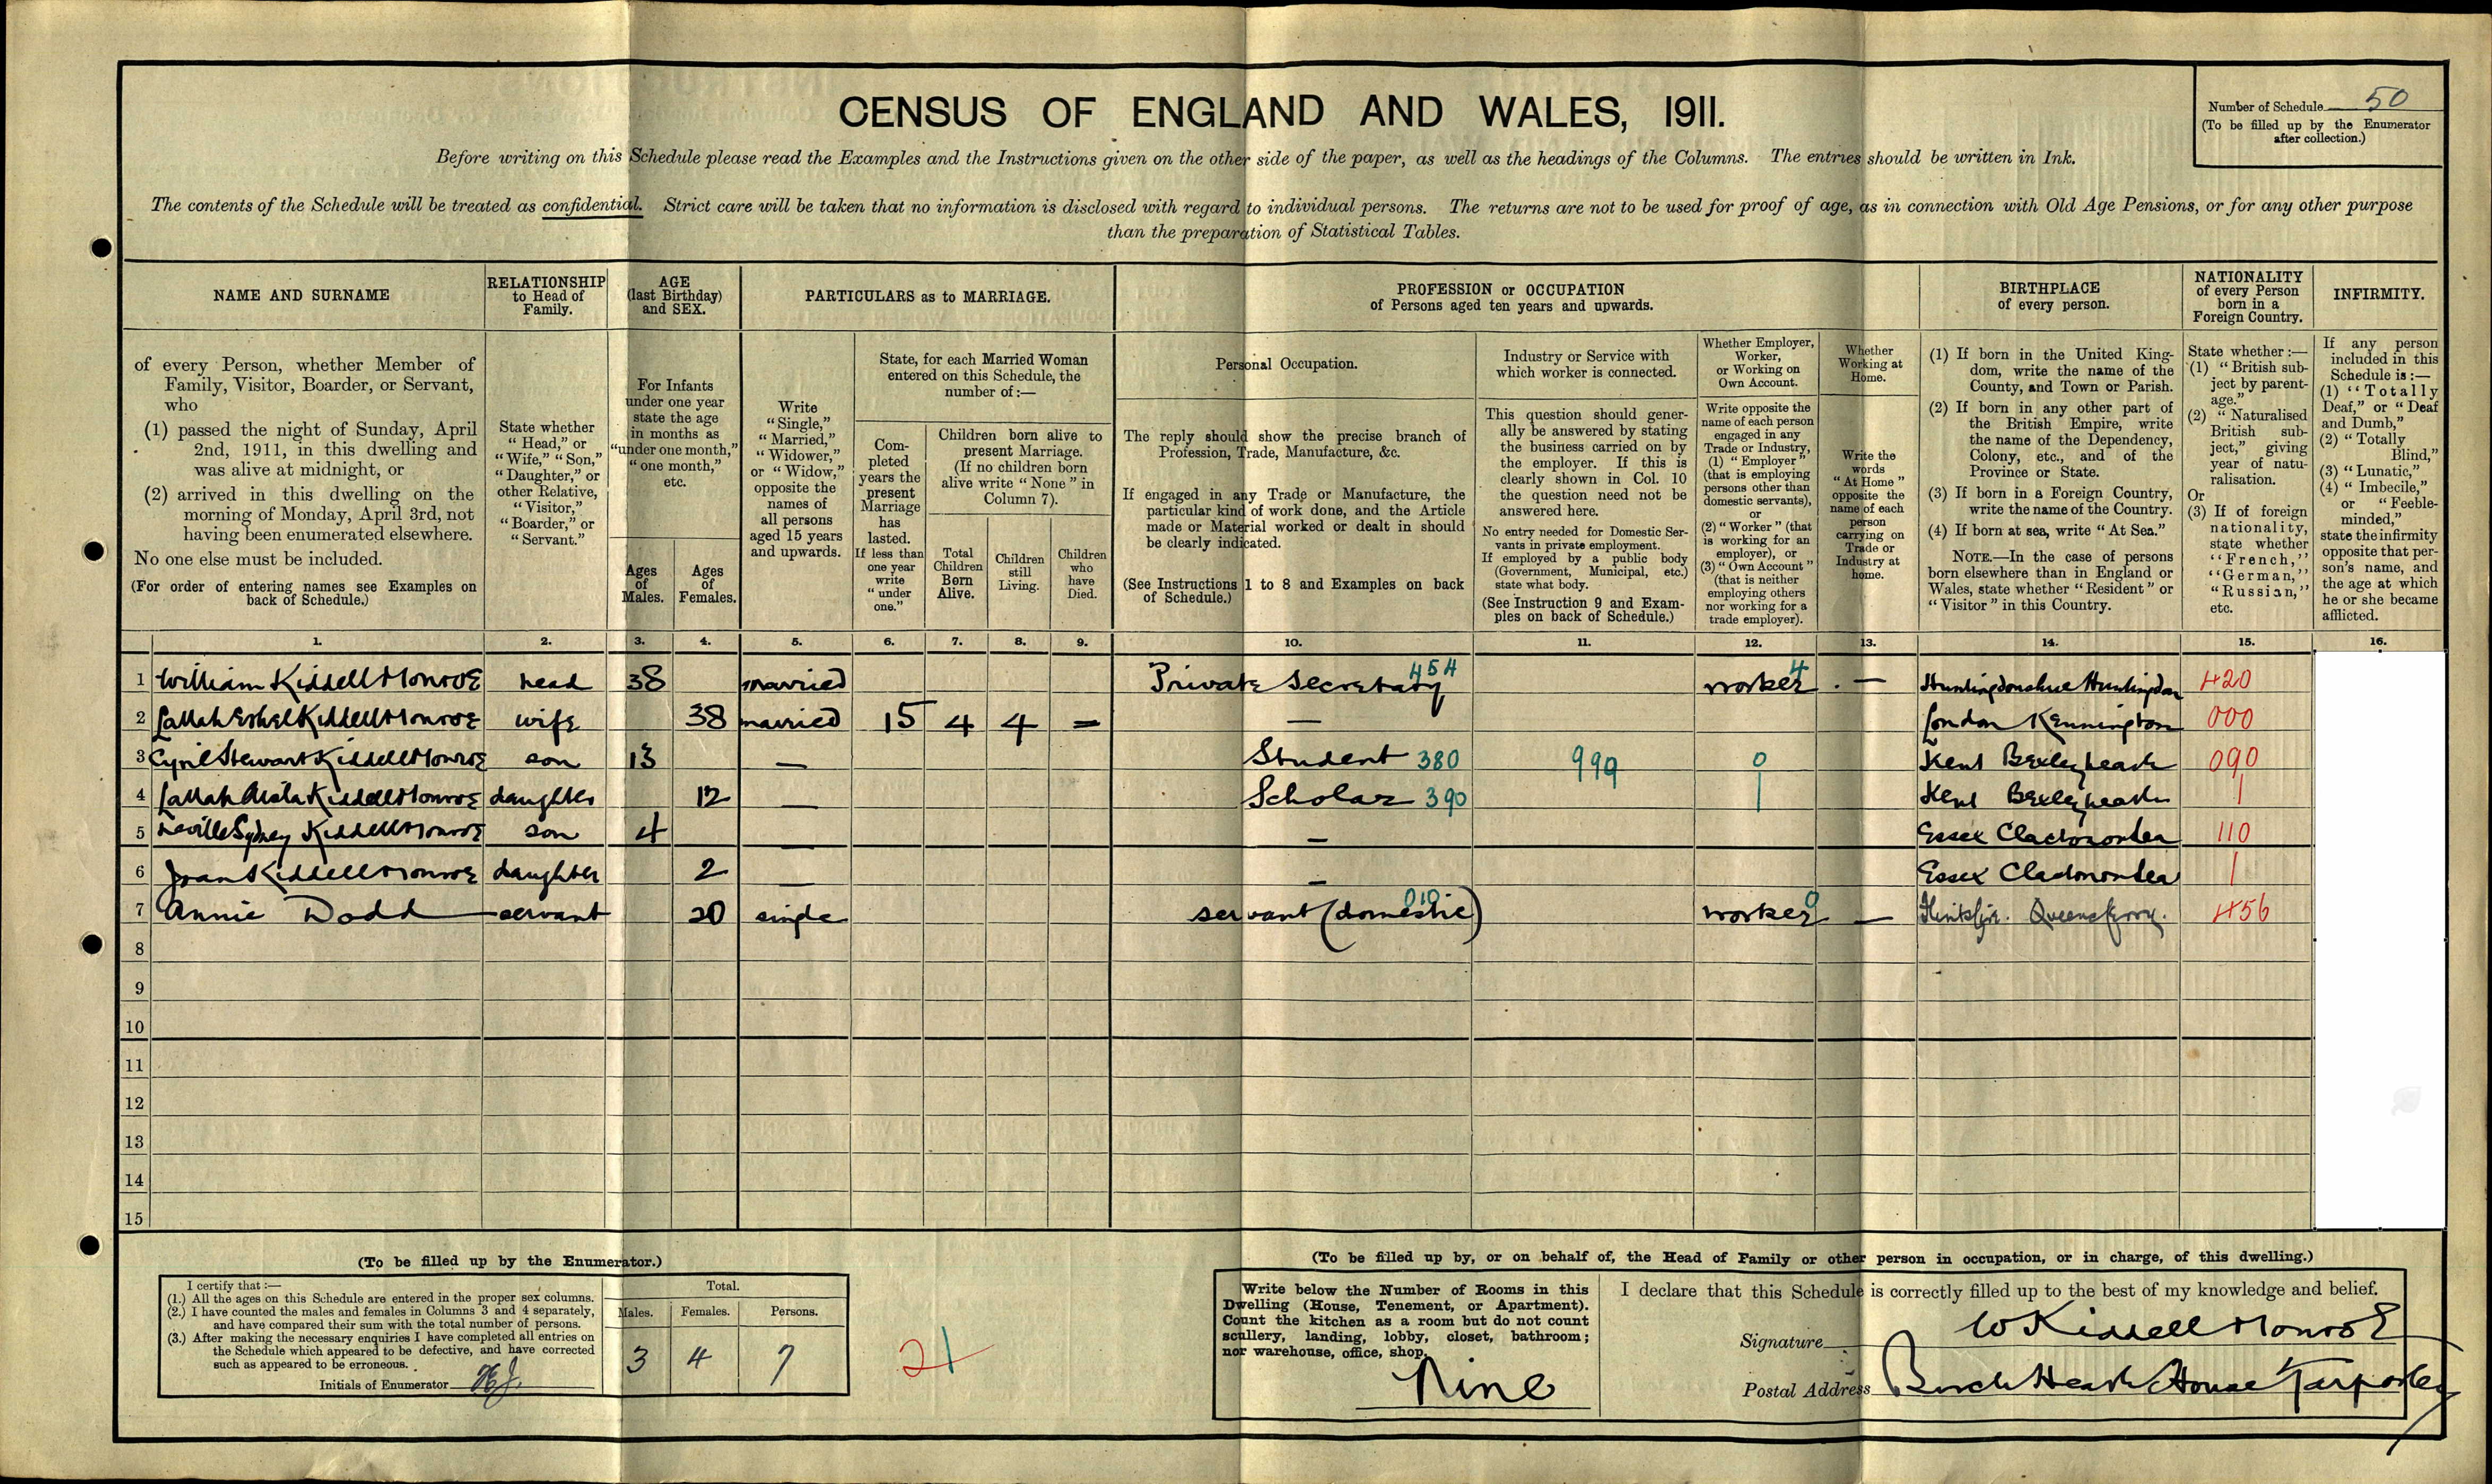 CENSUS OF ENGLAND AND WALES, 1911.
Number of Schedule 50
(To be filled up by the Enumerator
after collection.)
Before writing on this Schedule please read the Examples and the Instructions given on the other side of the paper, as well as the headings of the Columns. The entries should be written in Ink.
The contents of the Schedule will be treated as confidential. Strict care will be taken that no information is disclosed with regard to individual persons. The returns are not to be used for proof of age, as in connection with Old Age Pensions, or for any other purpose
than the preparation of Statistical Tables.
NAME AND SURNAME
of every Person, whether Member of
Family, Visitor, Boarder, or Servant,
who
(1) passed the night of Sunday, April
2nd, 1911, in this dwelling and
was alive at midnight, or
(2) arrived in this dwelling on the
morning of Monday, April 3rd, not
having been enumerated elsewhere.
No one else must be included.
(For order of entering names see Examples on
back of Schedule.)
RELATIONSHIP
to Head of
Family.
State whether
"Head," or
"Wife," "Son,"
"Daughter," or
other Relative,
"Visitor,"
"Boarder," or
"Servant."
AGE
(last Birthday)
and SEX.
For Infants
under one year
state the age
in months as
"under one month,"
"one month,"
etc.
Ages
of
Males.
Ages
of
Females.
PARTICULARS as to MARRIAGE.
Write
"Single,"
"Married,"
"Widower,"
or "Widow,"
opposite the
names of
all persons
aged 15 years
and upwards.
State, for each Married Woman
entered on this Schedule, the
number of:—
Com-
pleted
years the
present
Marriage
has
lasted.
If less than
one year
write
"under
one."
Children born alive to
present Marriage.
(If no children born
alive write "None" in
Column 7).
Total
Children
Born
Alive.
Children
still
Living.
Children
who
have
Died.
PROFESSION or OCCUPATION
of Persons aged ten years and upwards.
Personal Occupation.
The reply should show the precise branch of
Profession, Trade, Manufacture, &c.
If engaged in any Trade or Manufacture, the
particular kind of work done, and the Article
made or Material worked or dealt in should
be clearly indicated.
(See Instructions 1 to 8 and Examples on back
of Schedule.)
Industry or Service with
which worker is connected.
This question should gener-
ally be answered by stating
the business carried on by
the employer. If this is
clearly shown in Col. 10
the question need not be
answered here.
No entry needed for Domestic Ser-
vants in private employment.
If employed by a public body
(Government, Municipal, etc.)
state what body.
(See Instruction 9 and Exam-
ples on back of Schedule.)
Whether Employer,
Worker,
or Working on
Own Account.
Write opposite the
name of each person
engaged in any
Trade or Industry,
(1) "Employer"
(that is employing
persons other than
domestic servants),
or
(2) "Worker" (that
is working for an
employer), or
(3) "Own Account"
(that is neither
employing others
nor working for a
trade employer).
Whether
Working at
Home.
Write the
words
"At Home"
opposite the
name of each
person
carrying on
Trade or
Industry at
home.
BIRTHPLACE
of every person.
(1) If born in the United King-
dom, write the name of the
County, and Town or Parish.
(2) If born in any other part of
the British Empire, write
the name of the Dependency,
Colony, etc., and of the
Province or State.
(3) If born in a Foreign Country,
write the name of the Country.
(4) If born at sea, write "At Sea."
NOTE.—In the case of persons
born elsewhere than in England or
Wales, state whether "Resident" or
"Visitor" in this Country.
NATIONALITY
of every Person
born in a
Foreign Country.
State whether:—
(1) "British sub-
ject by parent-
age."
(2) "Naturalised
British sub-
ject," giving
year of natu-
ralisation.
Or
(3) If of foreign
nationality,
state whether
"French,"
"German,"
"Russian,"
etc.
INFIRMITY.
If any person
included in this
Schedule is:—
(1) "Totally
Deaf," or "Deaf
and Dumb,"
(2) "Totally
Blind,"
(3) "Lunatic,"
(4) "Imbecile,"
or "Feeble-
minded,"
state the infirmity
opposite that per-
son's name, and
the age at which
he or she became
afflicted.
1. 2. 3. 4. 5. 6. 7. 8. 9. 10. 11. 12. 13. 14. 15. 16.
1 William Kiddell Monroe head 38 married Private Secretary 454 worker 4 — Huntingdonshire Huntingdon 420
2 Lallah Kiddell Monroe wife 38 married 15 4 4 = — London Kennington 000
3 Cyril Stewart Kiddell Monroe son 13 — Student 380 999 0 Kent Bexleyheath 090
4 Lallah Kiddell Monroe daughter 12 — Scholar 390 | Kent Bexleyheath |
5 Neville Sydney Kiddell Monroe son 4 — — Essex Clactononsea 110
6 Joan Kiddell Monroe daughter 2 — — Essex Clactononsea |
7 Annie Dodd servant 20 single servant (domestic) 010 worker 0 — Flintshir. Queensferry. 456
8
9
10
11
12
13
14
15
(To be filled up by the Enumerator.)
I certify that:—
(1.) All the ages on this Schedule are entered in the proper sex columns.
(2.) I have counted the males and females in Columns 3 and 4 separately,
and have compared their sum with the total number of persons.
(3.) After making the necessary enquiries I have completed all entries on
the Schedule which appeared to be defective, and have corrected
such as appeared to be erroneous.
Initials of Enumerator
Total.
Males. Females. Persons.
3 4 7
21
(To be filled up by, or on behalf of, the Head of Family or other person in occupation, or in charge, of this dwelling.)
Write below the Number of Rooms in this
Dwelling (House, Tenement, or Apartment).
Count the kitchen as a room but do not count
scullery, landing, lobby, closet, bathroom;
nor warehouse, office, shop.
Nine
I declare that this Schedule is correctly filled up to the best of my knowledge and belief.
Signature W Kiddell Monroe
Postal Address Birch Heath House Tarporley